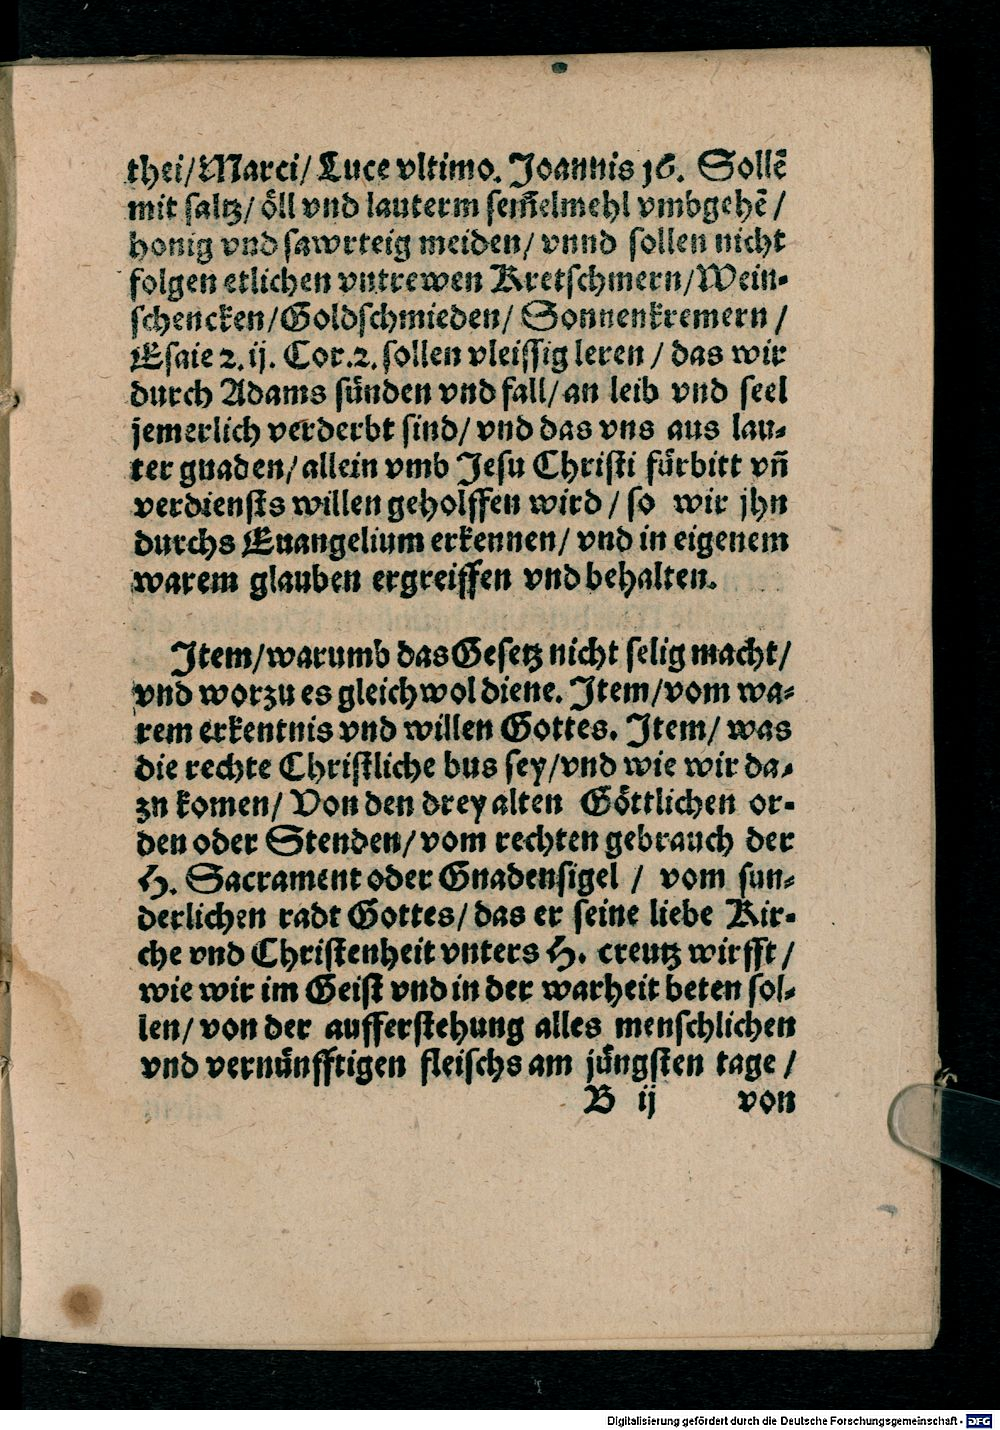 thei/Marci/ Luce vltimo. Joannis 16. Sollē
mit saltz/ öll vnd lauterm sem̄elmehl vmbgehē /
honig vnd sawrteig meiden/ vnnd sollen nicht
folgen etlichen vntrewen Kretschmern/Wein-
schencken/Goldschmieden/ Sonnenkremern /
Esaie 2. ij. Cor.2. sollen vleissig leren / das wir
durch Adams sünden vnd fall/ an leib vnd seel
jemerlich verderbt sind/ vnd das vns aus lau-
ter gnaden/ allein vmb Jesu Christi fürbitt vn̄
verdiensts willen geholffen wird / so wir jhn
durchs Euangelium erkennen/ vnd in eigenem
warem glauben ergreiffen vnd behalten.
Item/warumb das Gesetz nicht selig macht/
vnd worzu es gleichwol diene. Item/vom wa-
rem erkentnis vnd willen Gottes. Item/ was
die rechte Christliche bus sey/vnd wie wir da-
zu komen/ Von den drey alten Göttlichen or-
den oder Stenden/ vom rechten gebrauch der
H. Sacrament oder Gnadensigel / vom sun-
derlichen radt Gottes/ das er seine liebe Kir-
che vnd Christenheit vnters H. creutz wirfft /
wie wir im Geist vnd in der warheit beten sol-
len/ von der aufferstehung alles menschlichen
vnd vernünfftigen fleischs am jüngsten tage /
B ij von
Digitalisierung gefördert durch die Deutsche Forschungsgemeinschaft - DFG